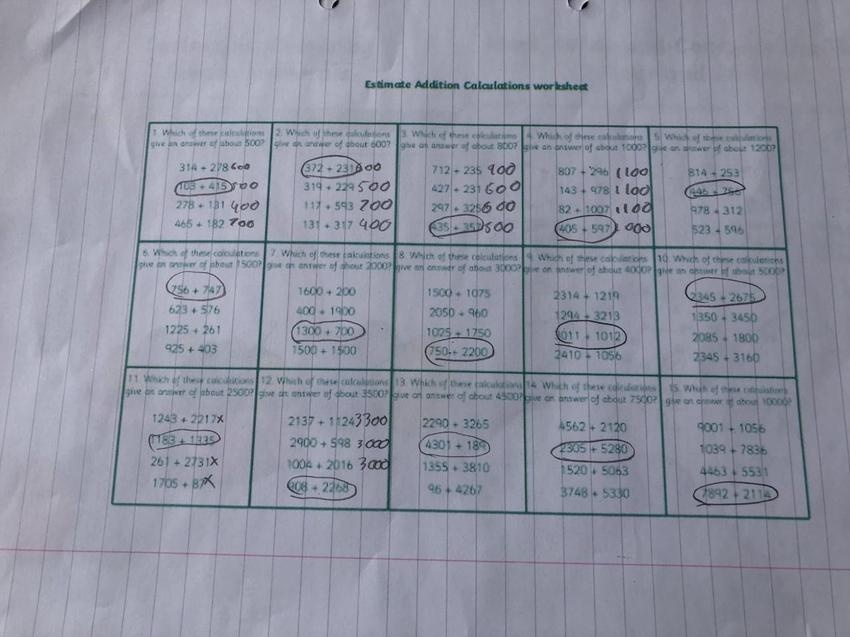 Estimate Addition Calculations worksheet
1. Which of these calculations give an answer of about 500?
314 + 278 600
103 + 415 500
278 + 131 400
465 + 182 700
2. Which of these calculations give an answer of about 600?
372 + 231 600
319 + 229 500
117 + 593 700
131 + 317 400
3. Which of these calculations give an answer of about 800?
712 + 235 900
427 + 231 600
297 + 325 600
435 + 357 800
4. Which of these calculations give an answer of about 1000?
807 + 296 1100
143 + 978 1100
82 + 1007 1100
405 + 597 1000
5. Which of these calculations give an answer of about 1200?
814 + 253
446 + 756
978 + 312
523 + 596
6. Which of these calculations give an answer of about 1500?
756 + 747
623 + 576
1225 + 261
925 + 403
7. Which of these calculations give an answer of about 2000?
1600 + 200
400 + 1900
1300 + 700
1500 + 1500
8. Which of these calculations give an answer of about 3000?
1500 + 1075
2050 + 960
1025 + 1750
750 + 2200
9. Which of these calculations give an answer of about 4000?
2314 + 1219
1294 + 3213
3011 + 1012
2410 + 1056
10. Which of these calculations give an answer of about 5000?
2345 + 2675
1350 + 3450
2085 + 1800
2345 + 3160
11. Which of these calculations give an answer of about 2500?
1243 + 2217 x
1183 + 1335
261 + 2731 x
1705 + 87 x
12. Which of these calculations give an answer of about 3500?
2137 + 1124 3300
2900 + 598 3000
1004 + 2016 3000
908 + 2268
13. Which of these calculations give an answer of about 4500?
2290 + 3265
4301 + 189
1355 + 3810
96 + 4267
14. Which of these calculations give an answer of about 7500?
4562 + 2120
2305 + 5280
1520 + 5063
3748 + 5330
15. Which of these calculations give an answer of about 10000?
9001 + 1056
1039 + 7836
4463 + 5531
7892 + 2114